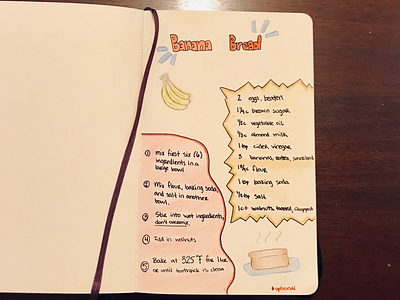 Banana Bread
2 eggs, beaten
1 1/4 c brown sugar
1/2 c vegetable oil
1/3 c almond milk
1 tsp cider vinegar
3 bananas, rotten, smashed
1 3/4 c flour
1 tsp baking soda
1/2 tsp salt
1 c + walnuts, toasted, chopped
① mix first six (6)
ingredients in a
large bowl
② Mix flour, baking soda,
and salt in another
bowl.
③ Stir into wet ingredients,
don't overmix.
④ Fold in walnuts
⑤ Bake at 325°F for 1 hr
or until toothpick is clean
+ optional